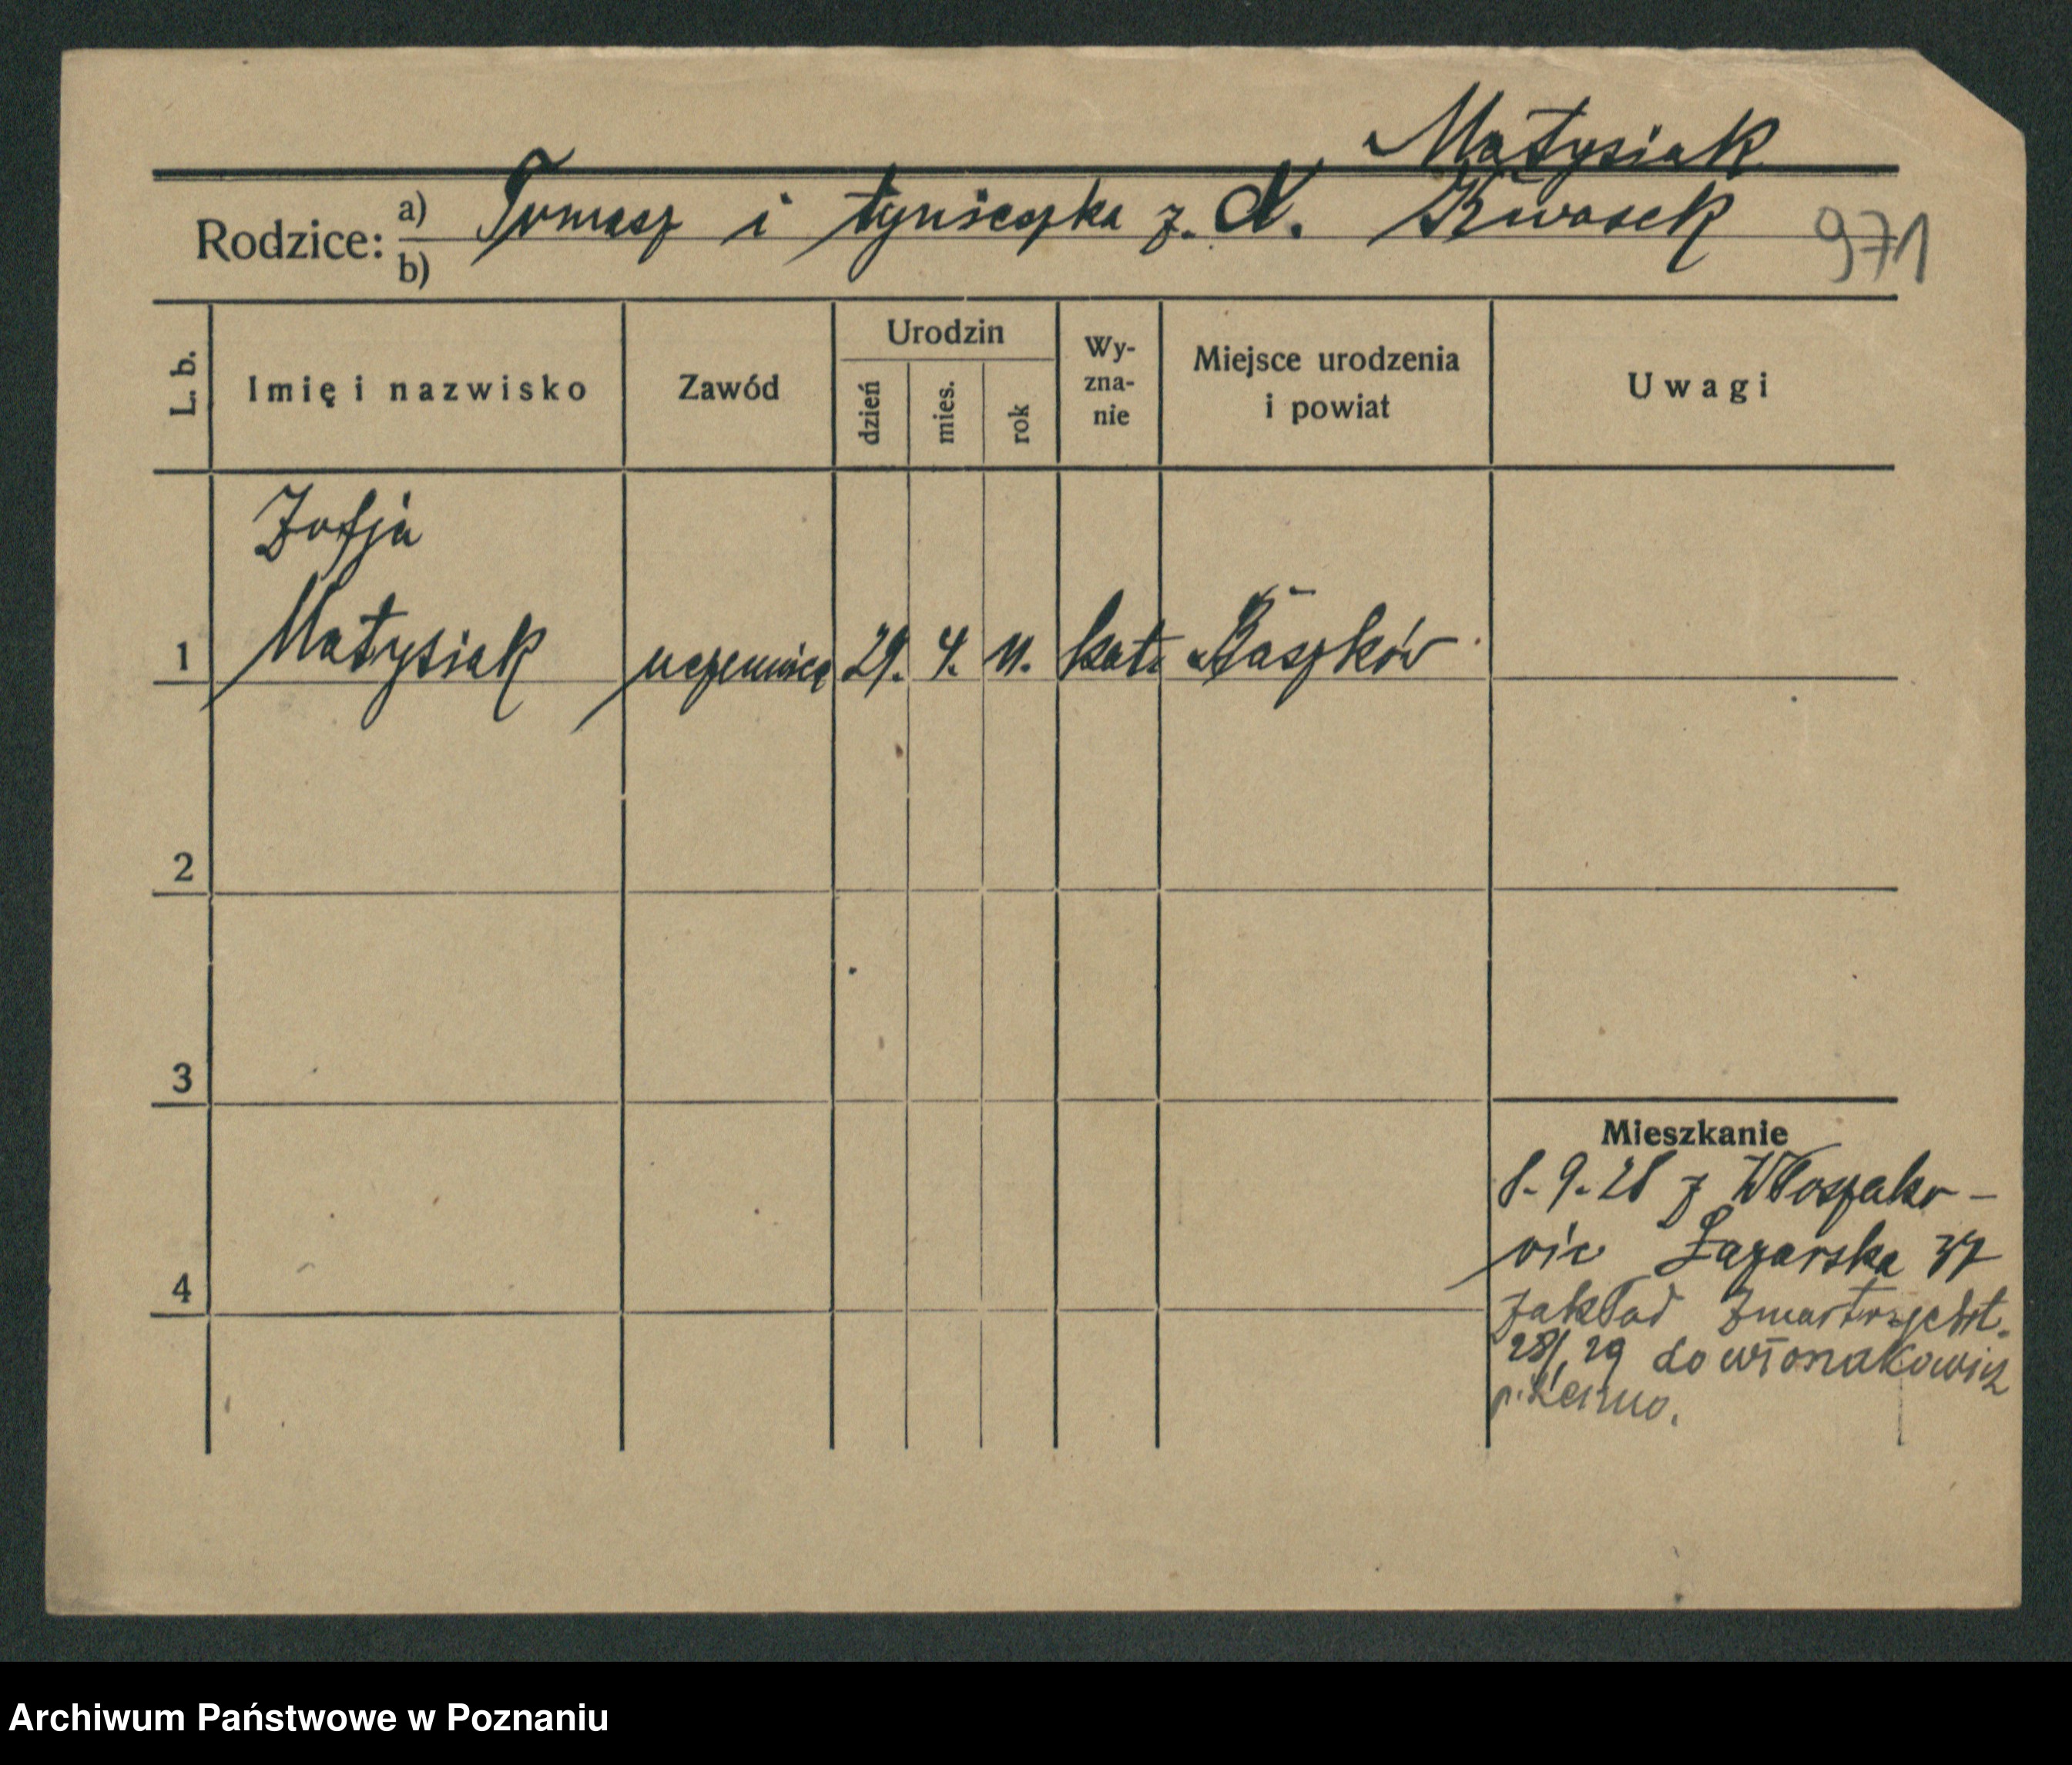 Matysiak
Rodzice: a) Tomasz i Agnieszka z. d. Kwasek
b)
971
L. b. Imię i nazwisko Zawód Urodzin dzień mies. rok Wy-zna-nie Miejsce urodzenia i powiat Uwagi
Zofja
1 Matysiak uczennica 29. 4. 11. kat. Raszków
2
3
Mieszkanie
8.9.28 z Włoszako-
wic Łazarska 37
4 Zakład Zmartwychst.
29 do
Archiwum Państwowe w Poznaniu